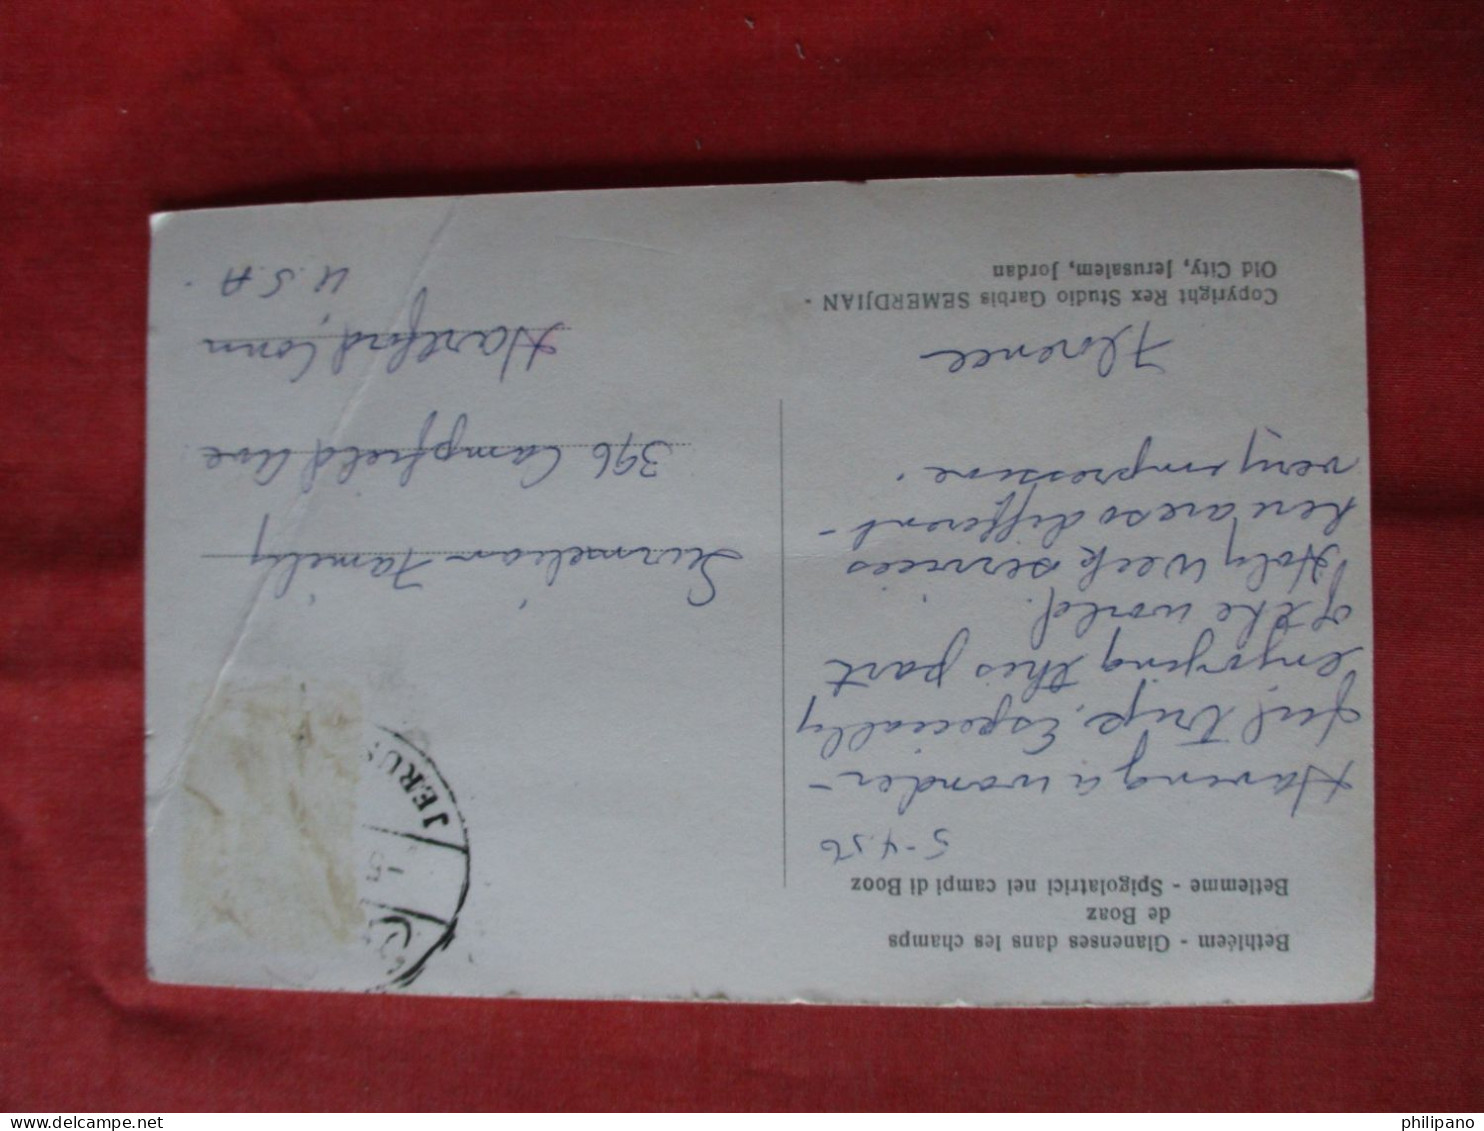 Bethléem - Glanenses dans les champs
de Boaz
Betlemme - Spigolatrici nel campi di Booz
5-4.56
Having a wonder-
ful trip. Especially
enjoying this part
of the world.
Holy Week services
here are so different -
very impressive.
Florence
Copyright Rex Studio Garbis SEMERDJIAN -
Old City, Jerusalem, Jordan
JERUS
Surmelian Family
396 Campfield Ave
Hartford, Conn
U.S.A.
philipano